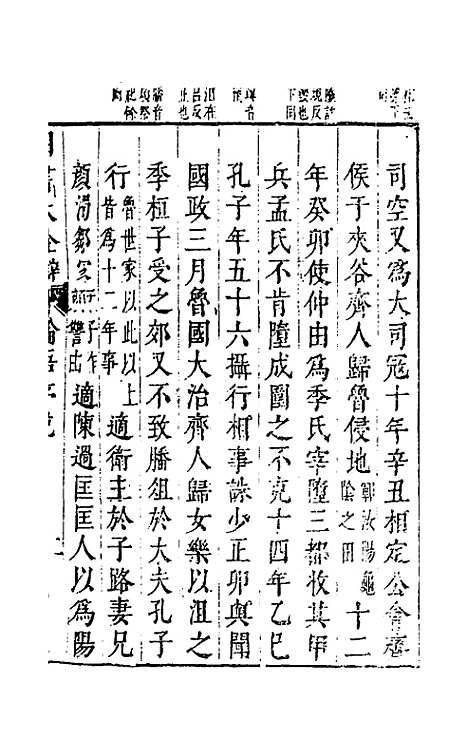 司空又爲大司寇十年辛丑相定公會齊
侯于夾谷齊人歸魯侵地鄆汶陽龜陰之田十二
年癸卯使仲由爲季氏宰墮三都收其甲
兵孟氏不肯墮成圍之不克十四年乙巳
孔子年五十六攝行相事誅少正卯與聞
國政三月魯國大治齊人歸女樂以沮之
季桓子受之郊又不致膰俎於大夫孔子
行魯世家以此以上皆爲十二年事適衛主於子路妻兄
顏濁鄒家孟子作顏讐由適陳過匡匡人以爲陽
四書大全辯 論語序說